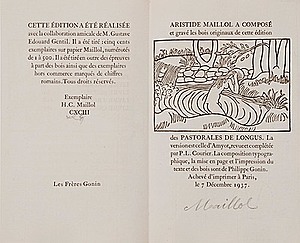 CETTE ÉDITION A ÉTÉ RÉALISÉE
avec la collaboration amicale de M. Gustave
Edouard Gentil. Il a été tiré cinq cents
exemplaires sur papier Maillol, numérotés
de 1 à 500. Il a été tiré en outre des épreuves
à part des bois ainsi que des exemplaires
hors commerce marqués de chiffres
romains. Tous droits réservés.
Exemplaire
H.C. Maillol
CXCIII
Les Frères Gonin
ARISTIDE MAILLOL A COMPOSÉ
et gravé les bois originaux de cette édition
des PASTORALES DE LONGUS. La
version est celle d'Amyot, revue et complétée
par P.L. Courier. La composition typogra-
phique, la mise en page et l'impression du
texte et des bois sont de Philippe Gonin.
Achevé d'imprimer à Paris,
le 7 Décembre 1937.
Maillol